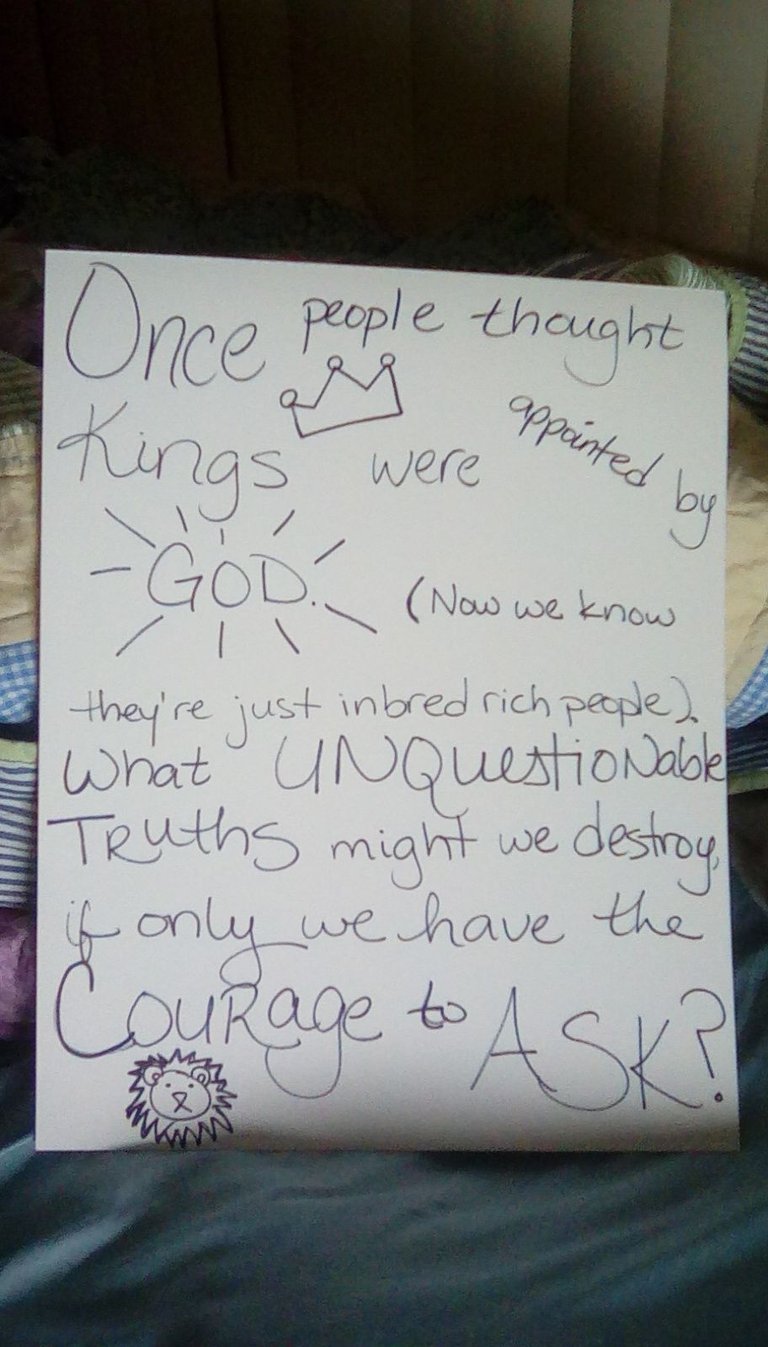 Once people thought
Kings were appointed by
GOD. (Now we know
they're just inbred rich people).
What UNQuestioNable
TRuths might we destroy,
if only we have the
CouRage to ASK?